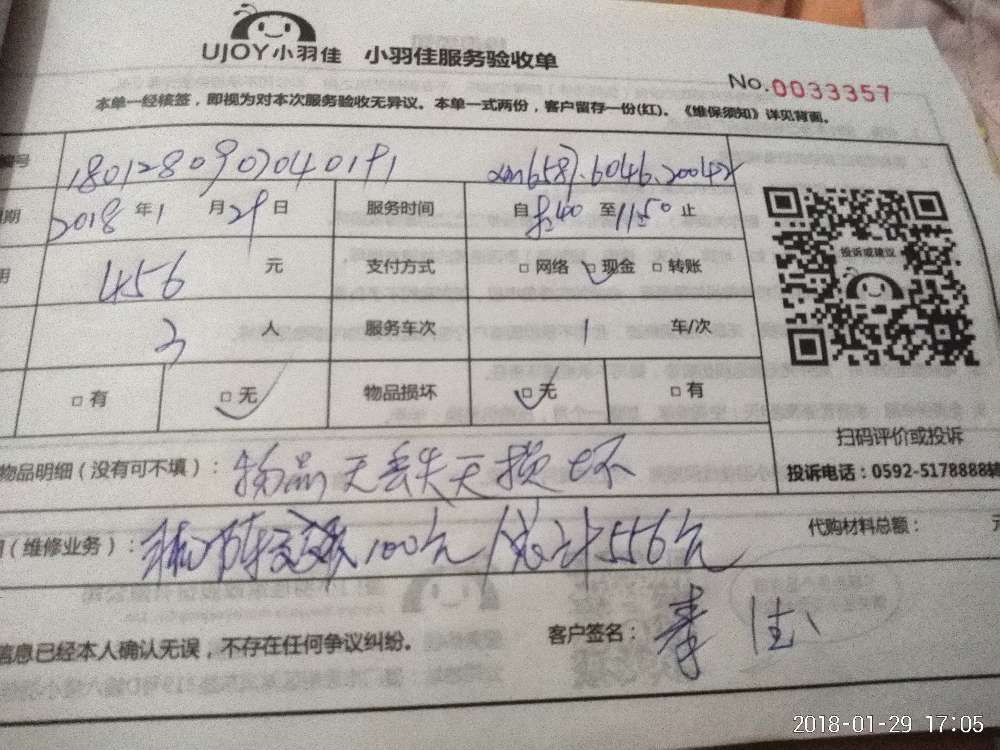 UJOY小羽佳 小羽佳服务验收单
No.0033357
本单一经核签，即视为对本次服务验收无异议。本单一式两份，客户留存一份(红)。《维保须知》详见背面。
编号
2018年1月29日 服务时间 自8:40至11:50止
456元 支付方式 □网络 □现金 □转账
3人 服务车次 1车/次
□有 □无 物品损坏 □无 □有
投诉或建议
扫码评价或投诉
投诉电话：0592-5178888转
物品明细（没有可不填）：物品无丢失无损坏
（维修业务）：100元/总计556元 代购材料总额： 元
信息已经本人确认无误，不存在任何争议纠纷。 客户签名：
2018-01-29 17:05